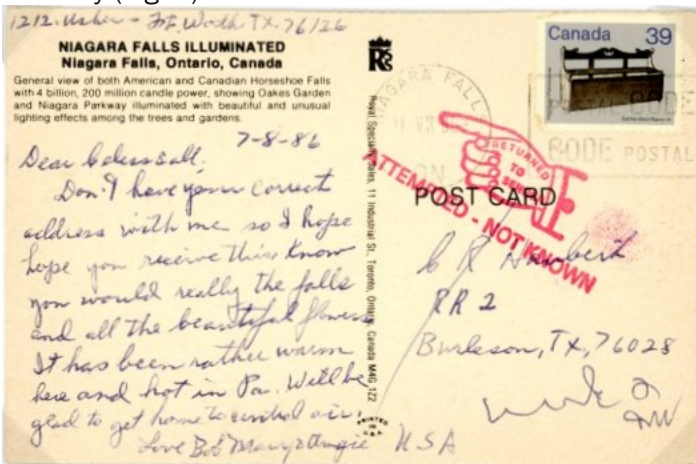 1212. Usher - Ft. Worth TX. 76126
NIAGARA FALLS ILLUMINATED
Niagara Falls, Ontario, Canada
General view of both American and Canadian Horseshoe Falls
with 4 billion, 200 million candle power, showing Oakes Garden
and Niagara Parkway illuminated with beautiful and unusual
lighting effects among the trees and gardens.
7-8-86
Dear
Don't have your correct
address with me so I hope
hope you receive this. Know
you would really the falls
and all the beautiful flowers
It has been rather warm
here and hot in Pa. Will be
glad to get home to central air.
Love Bob Mary & Angie
Royal Specialty Sales, 11 Industrial St., Toronto, Ontario, Canada M4G 1Z2
PRINTED
IN
U.S.A.
Canada 39
NIAGARA FALL
ON
POSTAL CODE
CODE POSTAL
RETURNED
TO
SENDER
ATTEMPTED - NOT KNOWN
POST CARD
C R
RR 2
Burleson, Tx, 76028
USA